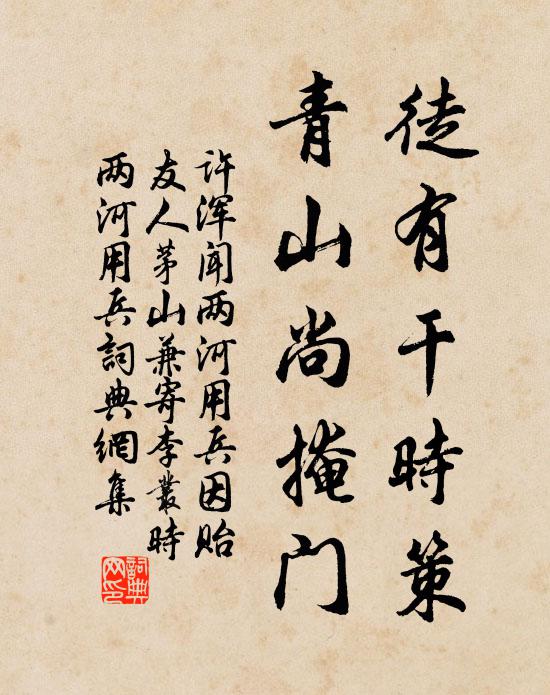 徒有干時策
青山尚掩门
许浑闻两河用兵因贻
友人茅山兼寄李叢時
两河用兵詞典網集
詞典网印